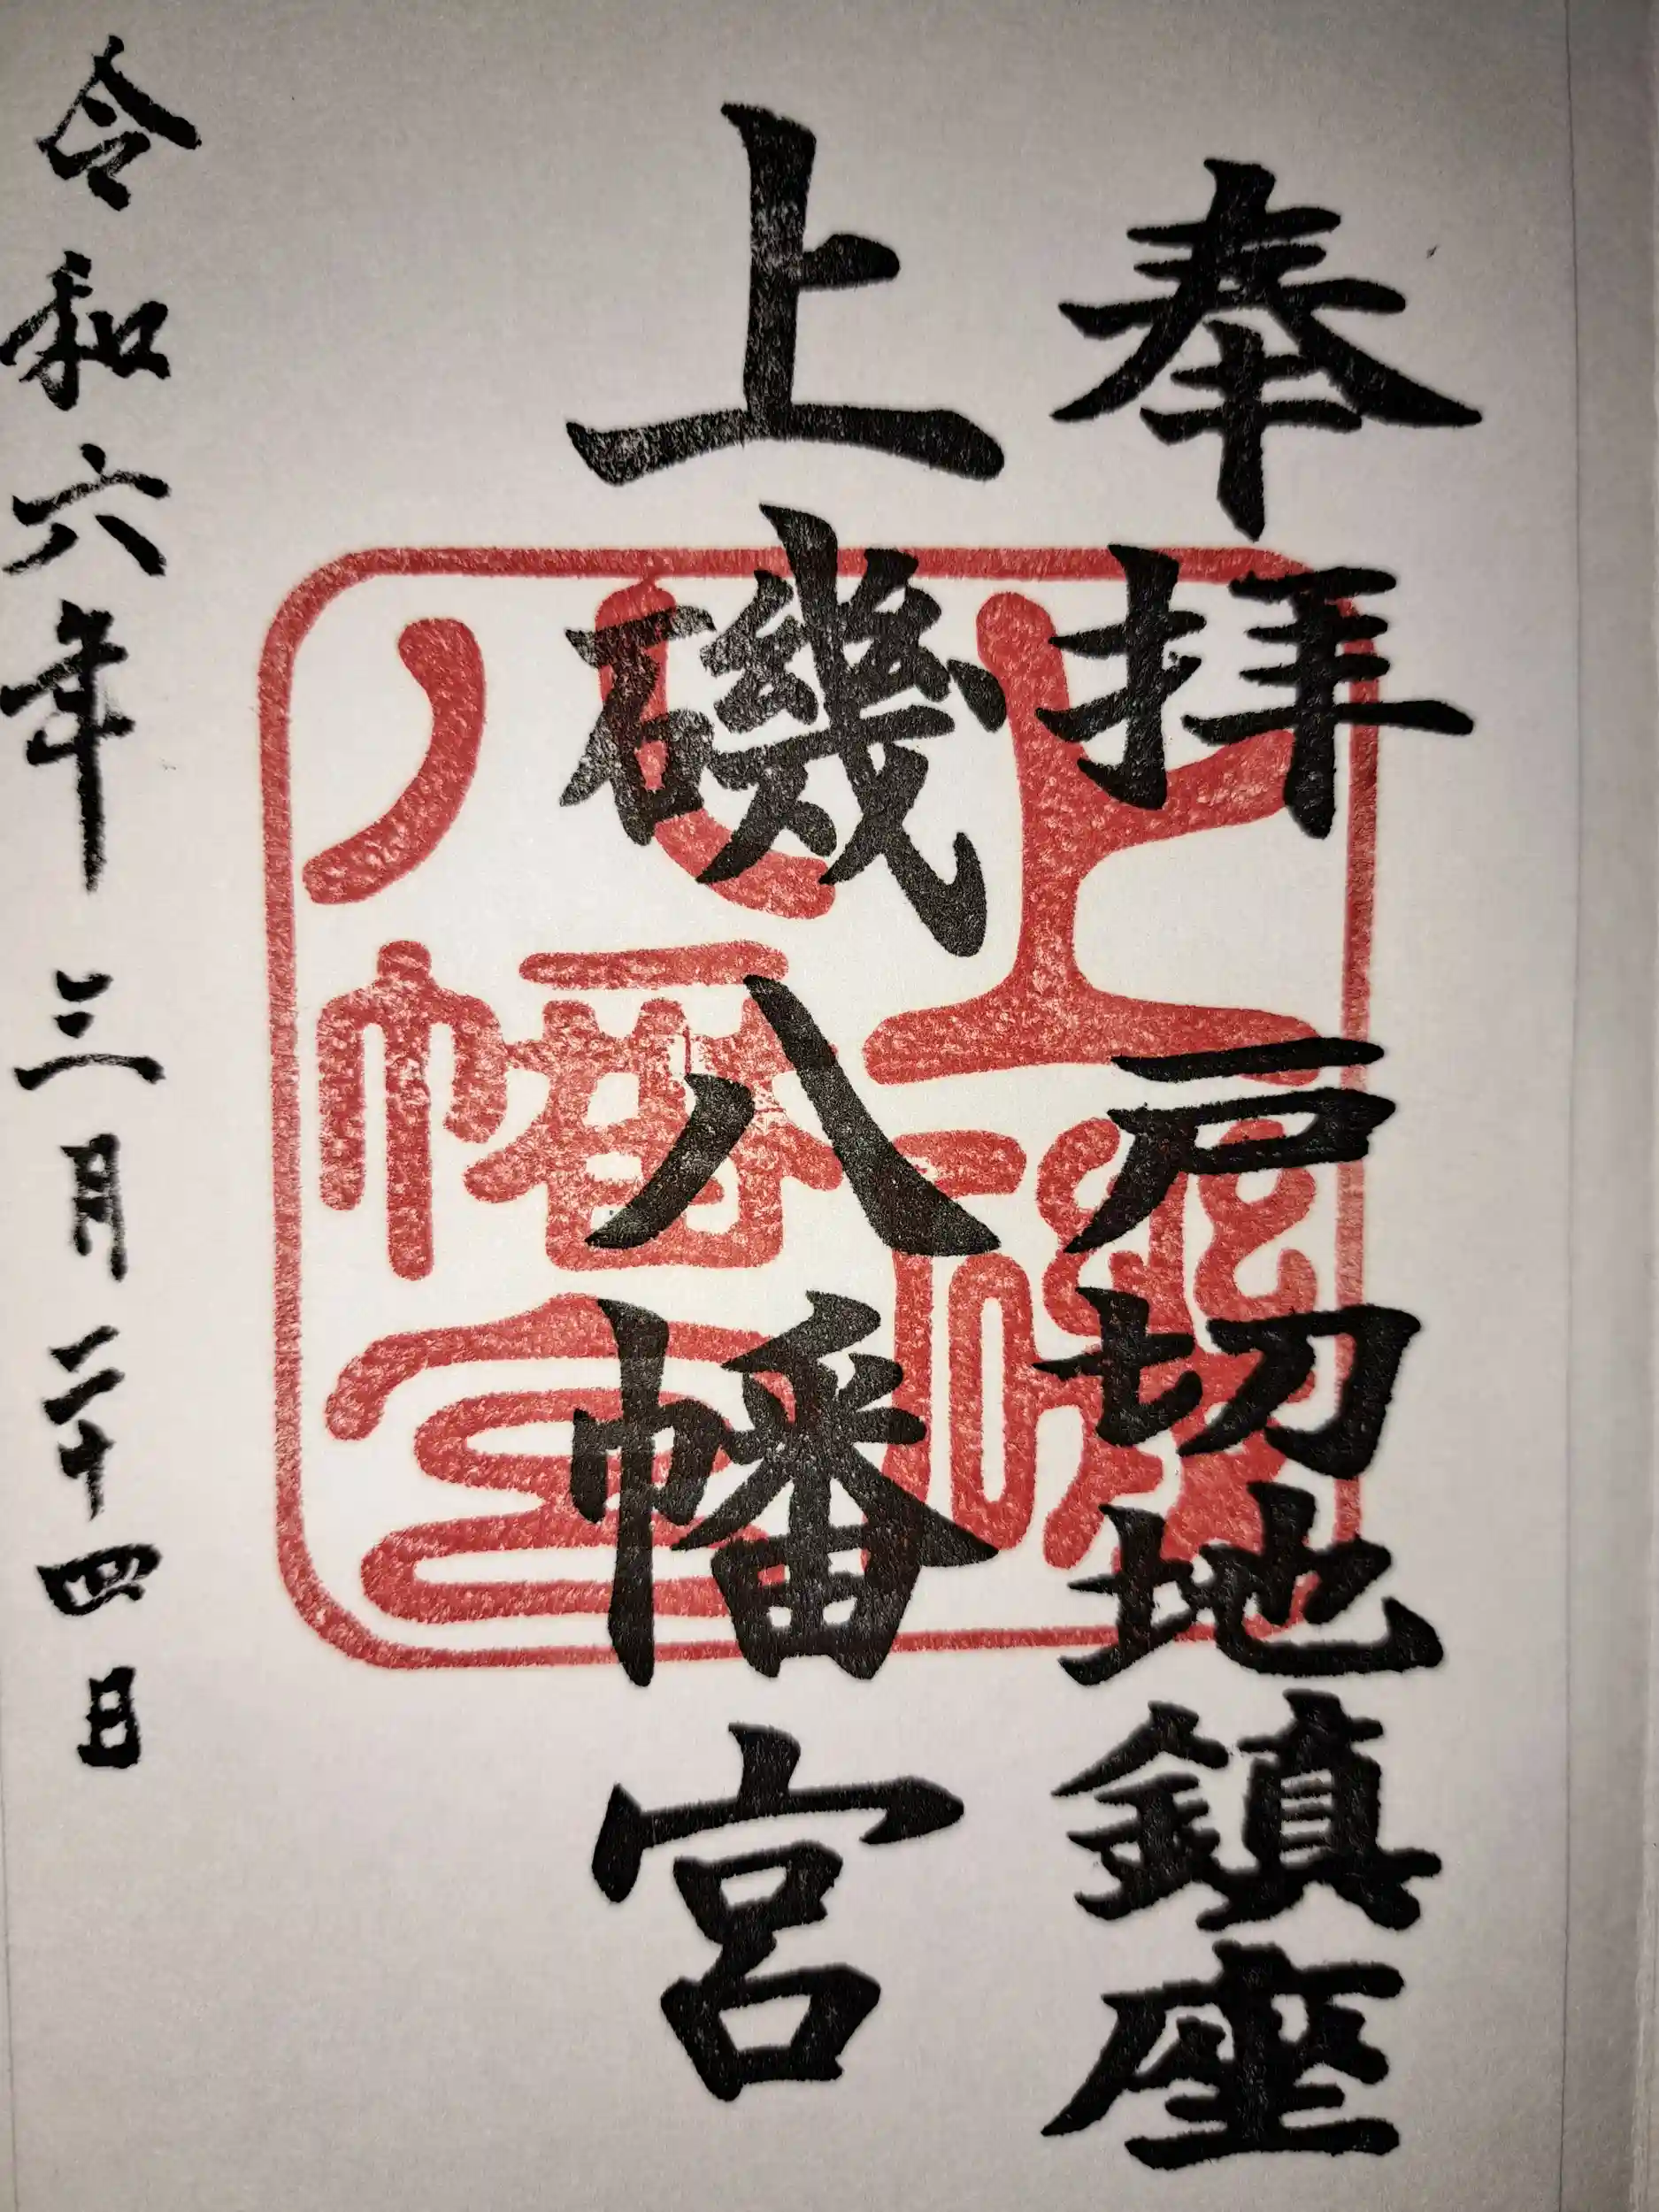 奉拝 戸切地鎮座
上磯八幡宮
上磯八幡宮
令和六年 三月二十四日